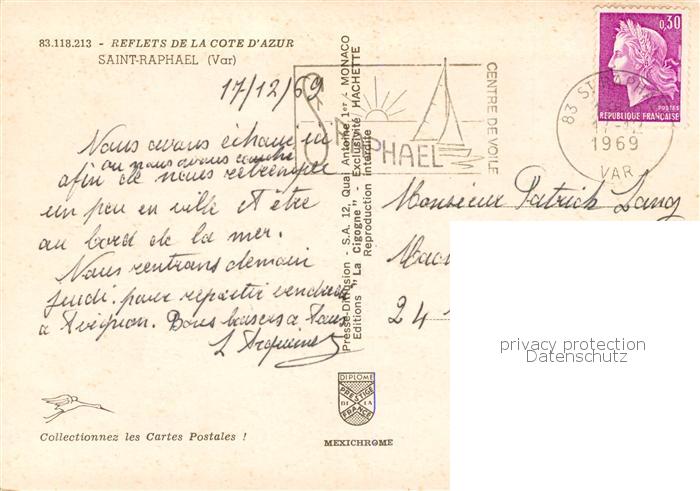 83.118.213 - REFLETS DE LA COTE D'AZUR
SAINT-RAPHAEL (Var)
17/12/69
Nous avons échoué ici
où nous avons couché
afin de nous retremper
un peu en ville et être
au bord de la mer.
Nous rentrons demain
jeudi pour repartir vendredi
à Avignon. Bons baisers à Tous
Collectionnez les Cartes Postales !
Presse-Diffusion - S.A. 12, Quai Antoine 1er - MONACO
Editions "La Cigogne" - Exclusivité HACHETTE
Reproduction interdite
DIPLOME
PRESTIGE
DE LA
FRANCE
MEXICHROME
RAPHAEL
CENTRE DE VOILE
83 ST
1969
VAR
0,30
POSTES
REPUBLIQUE FRANÇAISE
Monsieur Patrick Lang
24
privacy protection
Datenschutz